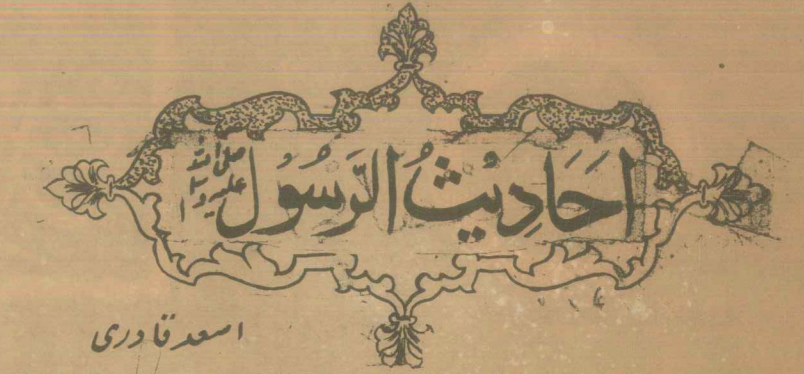 اَحَادِيْثُ الرَّسُوْل صلی اللہ علیہ وسلم
اسعد قادری